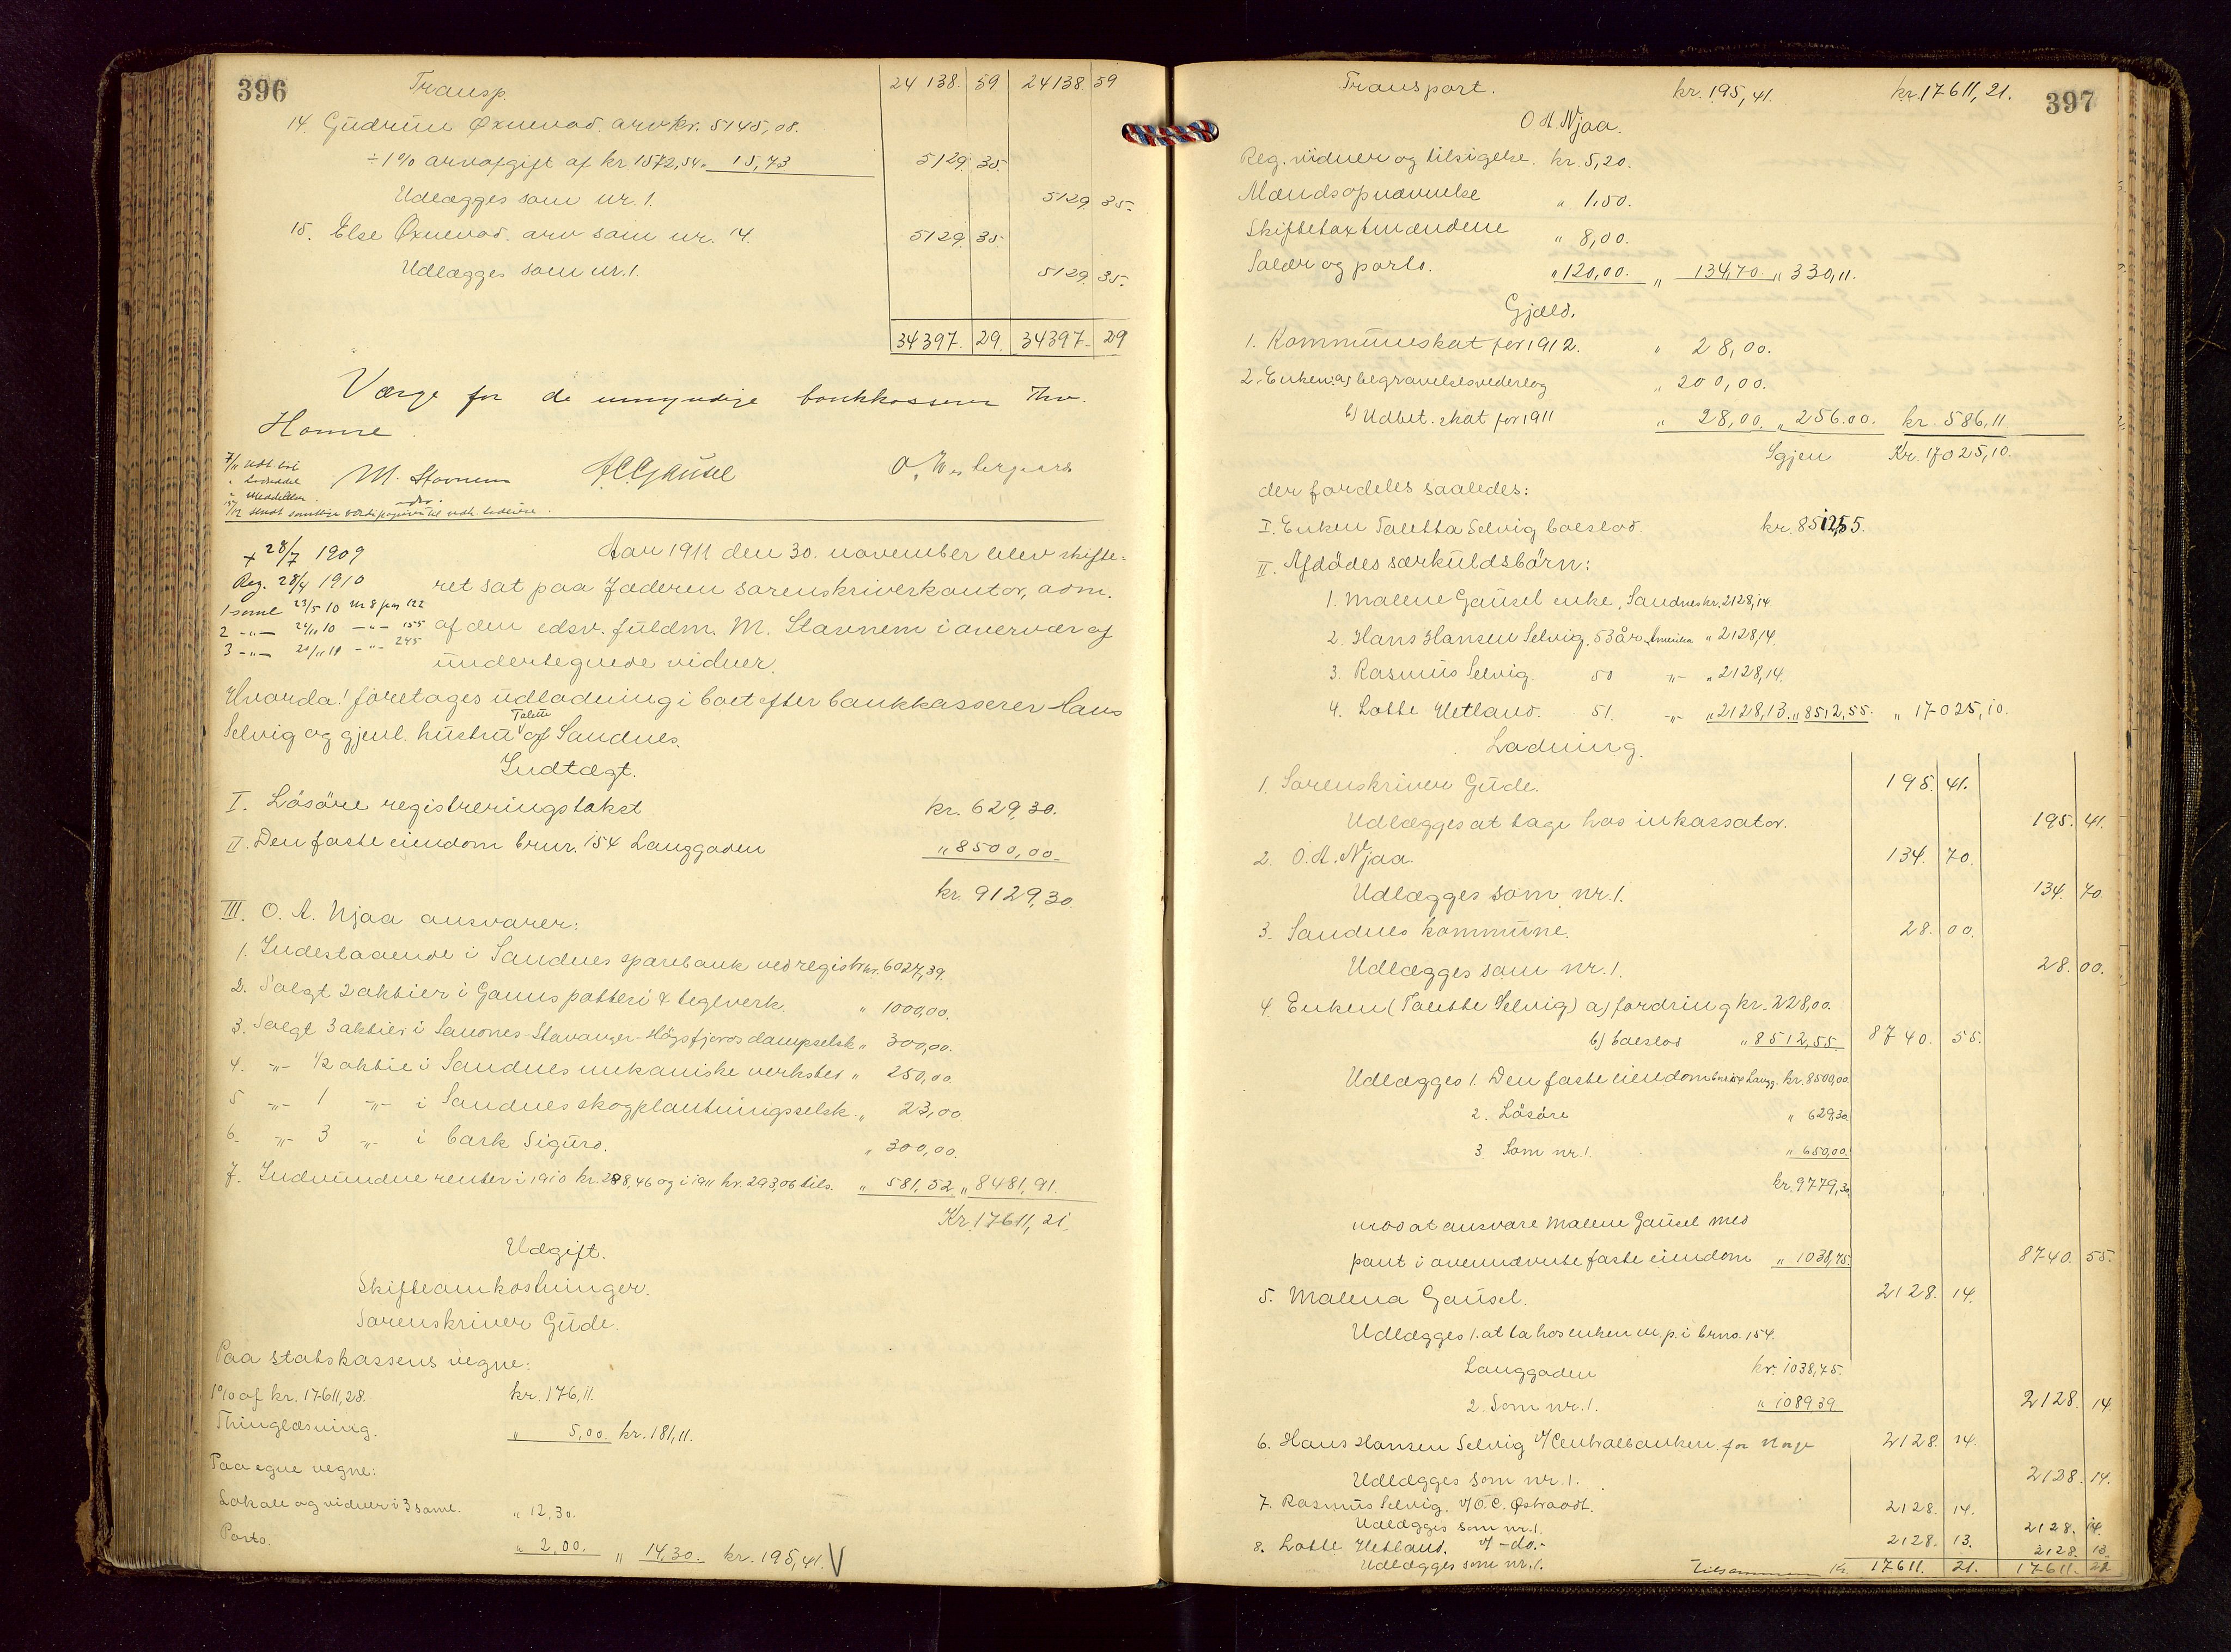 396
Transp. 24138. 59 24138. 59
14. Gudrun Oxnevad. arv kr. 5145,08.
÷ 1% arveafgift af kr 1572,54. 15,73 5129. 35.
Udlægges som nr. 1. 5129. 35.
15. Else Oxnevad. arv som nr. 14. 5129. 35
Udlægges som nr. 1. 5129. 35.
34397. 29. 34397. 29
Værge for de umyndige bankkasserer Thv.
Homse.
7/11 udt
" Lodseddel
" Meddelelse.
M. Stavnem A.C. Gausel O. Westergaard
15/12 sendt samtlige værdipapirer til vedk. lodeiere.
+ 28/7 1909
Reg. 28/4 1910
1 saml 23/5 10 nr 8 pag 122
2 -"- 24/11 10 -"- 155
3 -"- 20/11 11 -"- 245
Aar 1911 den 30. november blev skifte-
ret sat paa Jæderen sorenskriverkontor, adm.
af den edsv. fuldm. M. Stavnem i overvær af
undertegnede vidner.
Hvorda! foretages udlodning i boet efter bankkasserer Hans
Selvig og gjenl. hustru Taletta af Sandnes.
Indtægt.
I. Lösöre registreringstakst kr. 629,30.
II. Den faste eiendom brnr. 154 Langgaden " 8500,00.
kr. 9129,30.
III. O. A. Njaa ansvarer:
1. Indestaaende i Sandnes sparebank ved registr. kr. 6027,39.
2. Solgt 2 aktier i Ganns potteri & teglverk. " 1000,00.
3. Solgt 3 aktier i Sandnes-Stavanger-Högsfjords dampselsk " 300,00.
4. -"- 1/2 aktie i Sandnes mekaniske verksted " 250,00.
5 -"- 1 -"- i Sandnes skogplantningsselsk. " 23,00.
6. -"- 3 -"- i bark Sigurd. " 300,00.
7. Indvundne renter i 1910 kr. 288,46 og i 1911 kr. 293,06 tils. " 581,52 " 8481,91.
Kr. 17611,21.
Udgift.
Skifteomkostninger.
Sorenskriver Gude.
Paa statskassens vegne:
1% af kr. 17611,28. kr. 176,11.
Thinglæsning. " 5,00. kr. 181,11.
Paa egne vegne:
Lokale og vidner i 3 saml. " 12,30.
Porto. " 2,00. " 14,30. kr. 195,41. V
397
Transport. kr. 195,41. kr. 17611,21.
O A Njaa.
Reg. vidner og tilsigelse. kr. 5,20.
Mændsopnævnelse " 1,50.
Skiftetaxtmændene " 8,00.
Salær og porto. " 120,00. " 134,70. " 330,11.
Gjæld.
1. Kommuneskat for 1912. " 28,00.
2. Enken: a) begravelsesvederlag " 200,00.
b) Udbet. skat for 1911 " 28,00. " 256.00. kr. 586,11
Igjen Kr. 17025,10.
der fordeles saaledes:
I. Enken Taletta Selvig boeslod. kr. 8512,55.
II. Afdödes særkuldsbörn:
1. Malene Gausel enke, Sandnes kr. 2128,14.
2. Hans Hansen Selvig. 53 år, Amerika " 2128,14.
3. Rasmus Selvig. 50 -"- " 2128,14.
4. Lotte Hetland. 51. -"- " 2128,13. " 8512,55. " 17025,10.
Lodning.
1. Sorenskriver Gude. 195. 41.
Udlægges at tage hos inkassator. 195. 41.
2. O. A. Njaa. 134. 70.
Udlægges som nr. 1. 134. 70
3. Sandnes kommune. 28. 00.
Udlægges som nr. 1. 28. 00.
4. Enken (Taletta Selvig) a) fordring kr. 228,00.
b) boeslod " 8512,55. 8740. 55.
Udlægges 1. Den faste eiendom brnr 154 Langg. kr. 8500,00.
2. Lösöre " 629,30
3. Som nr. 1. " 650,00.
kr. 9779,30
mod at ansvare Malene Gausel med
pant i ovennævnte faste eiendom " 1038,75. 8740. 55.
5. Malena Gausel. 2128. 14.
Udlægges 1. at ta hos enken m. p. i brno. 154.
Langgaden kr. 1038,75.
2. Som nr. 1. " 1089,39 2128. 14.
6. Hans Hansen Selvig v/ Centralbanken for Norge 2128. 14.
Udlægges som nr. 1. 2128. 14.
7. Rasmus Selvig. v/ O. C. Östraadt. 2128. 14.
Udlægges som nr. 1. 2128. 14.
8. Lotte Hetland. v/ -do.- 2128. 13.
Udlægges som nr. 1. 2128. 13.
Tilsammen Kr. 17611. 21. 17611. 21